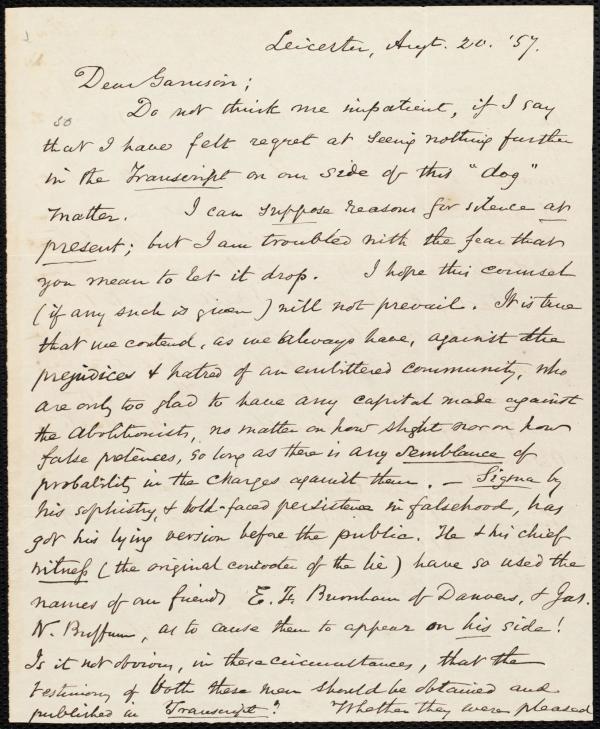 Leicester, Augt. 20. '57.
Dear Garrison;
Do not think me impatient, if I say
so
that I have felt regret at seeing nothing further
in the Transcript on our side of this "dog"
matter. I can suppose reasons for silence at
present; but I am troubled with the fear that
you mean to let it drop. I hope this counsel
(if any such is given) will not prevail. It is true
that we contend, as we always have, against the
prejudices & hatred of an embittered community, who
are only too glad to have any capital made against
the Abolitionists, no matter on how slight nor on how
false pretences, so long as there is any semblance of
probability in the charges against them. — Sigma by
his sophistry, & bold-faced persistence in falsehood, has
got his lying version before the public. He & his chief
witness (the original concocter of the lie) have so used the
names of our friends E. F. Burnham of Danvers, & Jas.
N. Buffum, as to cause them to appear on his side!
Is it not obvious, in these circumstances, that the
testimony of both these men should be obtained and
published in Transcript? Whether they were pleased